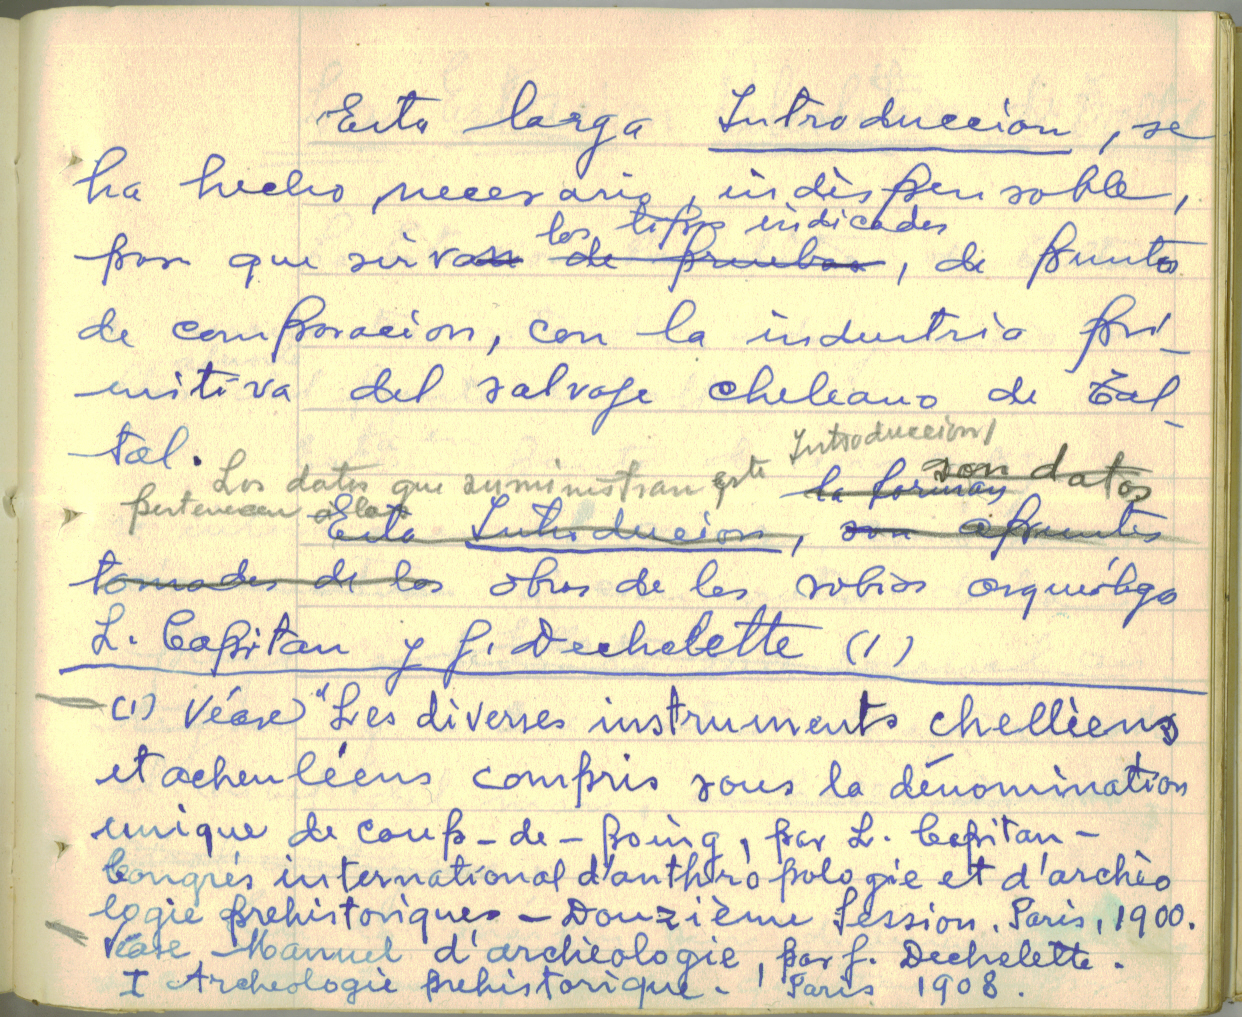 Esta larga Introduccion, se
ha hecho necesario, indispensable,
los tipos indicados
para que sirvan de pruebas, de punto
de comparacion, con la industria pri-
mitiva del salvaje cheleano de Tal-
tal.
Introduccion/
Los datos que suministran esta
la forman son datos
pertenecen a las
Esta Introduccion, son apuntes
tomados de las obras de los sabios arqueólogo
L. Capitan y J. Dechelette (1)
(1) Véase "Les diverses instruments chelléens
et acheuléens compris sous la dénomination
unique de coup-de-poing, par L. Capitan -
Congrés international d'anthropologie et d'archéo
logie prehistoriques - Douzième Session. Paris, 1900.
Véase Manuel d'archéologie, par J. Dechelette.
I Archeologie prehistorique. Paris 1908.